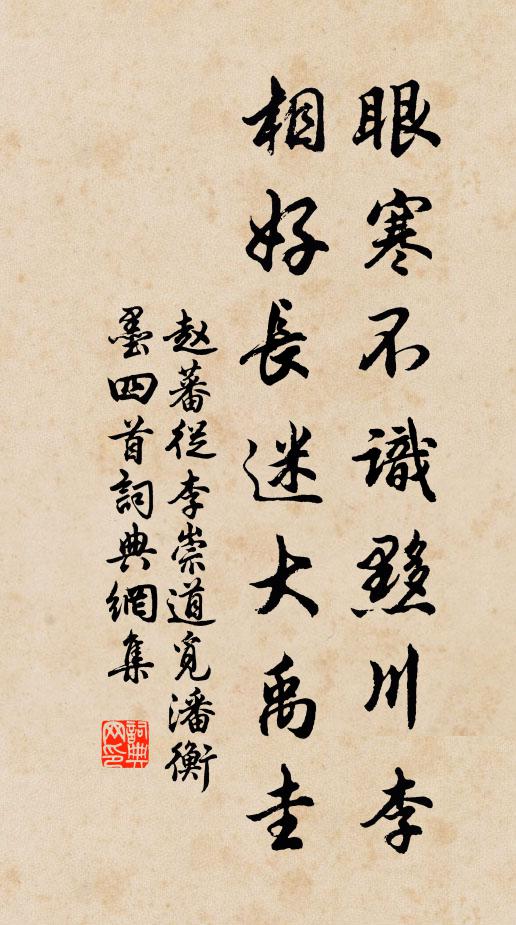 眼寒不識黟川李
相好長迷大禹圭
赵蕃從李崇道覓潘衡
墨四首詞典網集
詞典网印